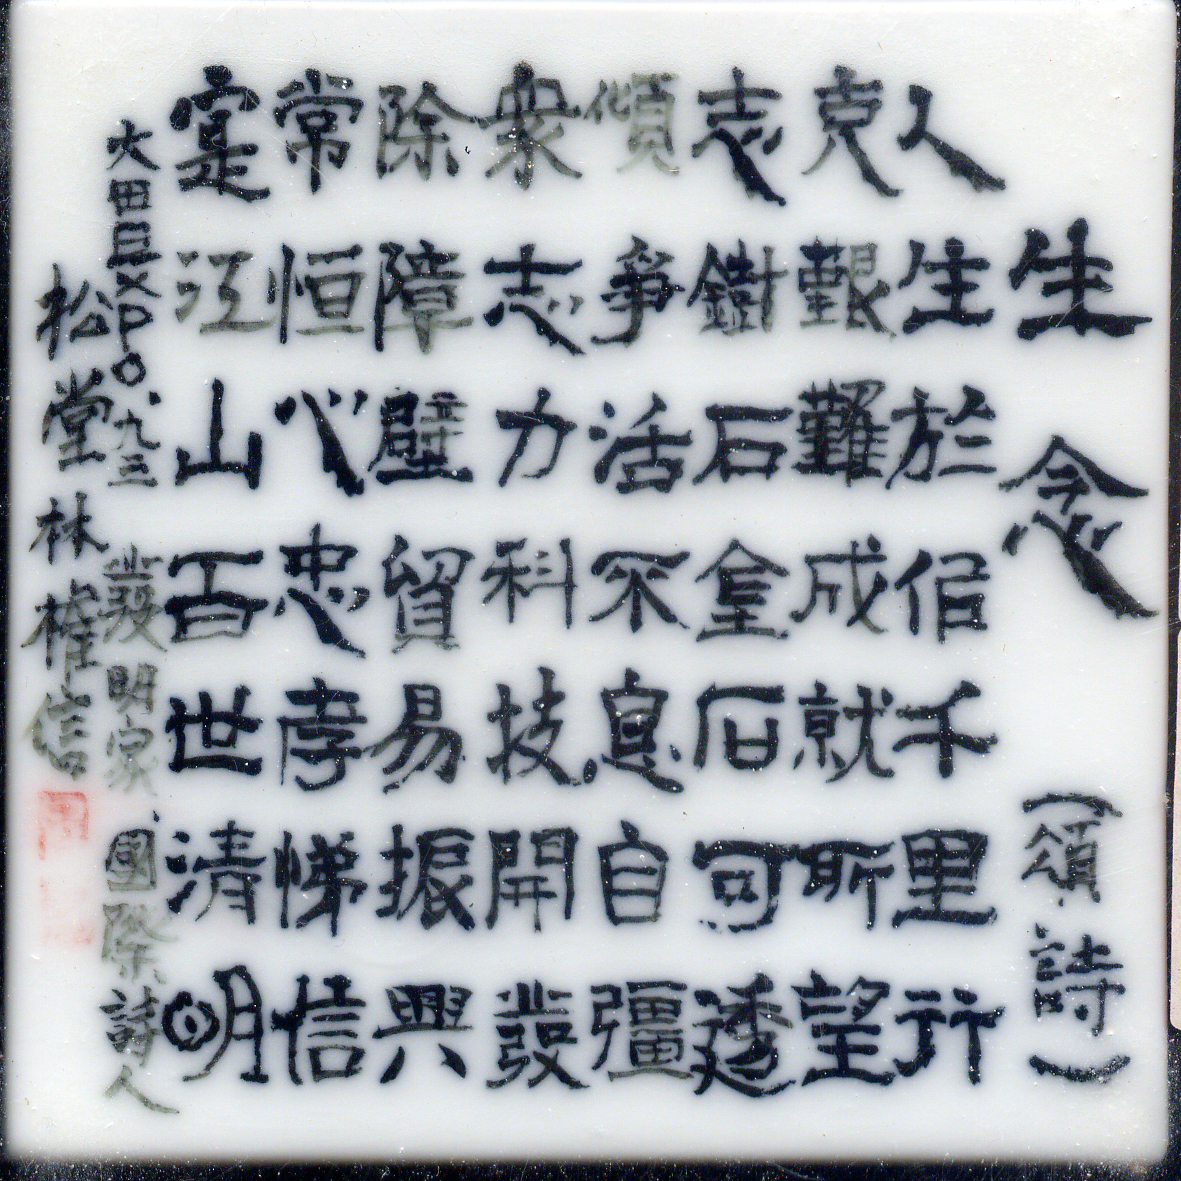 生念（頌詩）
人生於佰千里行
克艱難成就所望
志鐵石金石可透
傾爭活不息自彊
衆志力科技開發
除障壁貿易振興
常恒心忠孝悌信
寔江山百世清明
大田EXPO、九三 發明家、國際詩人
松堂 林權信